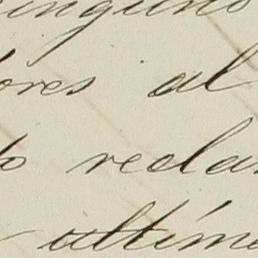 ninguno
ores al
o recla
ultimo